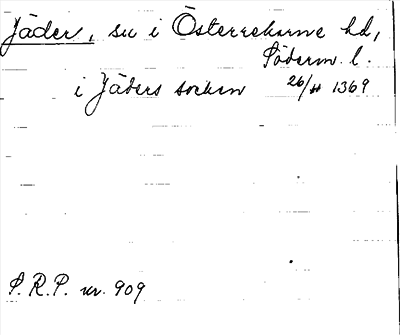 Jäder, sn i Österrekarne hd,
Söderm. l.
i Jäders socken 26/11 1369
S.R.P. nr. 909